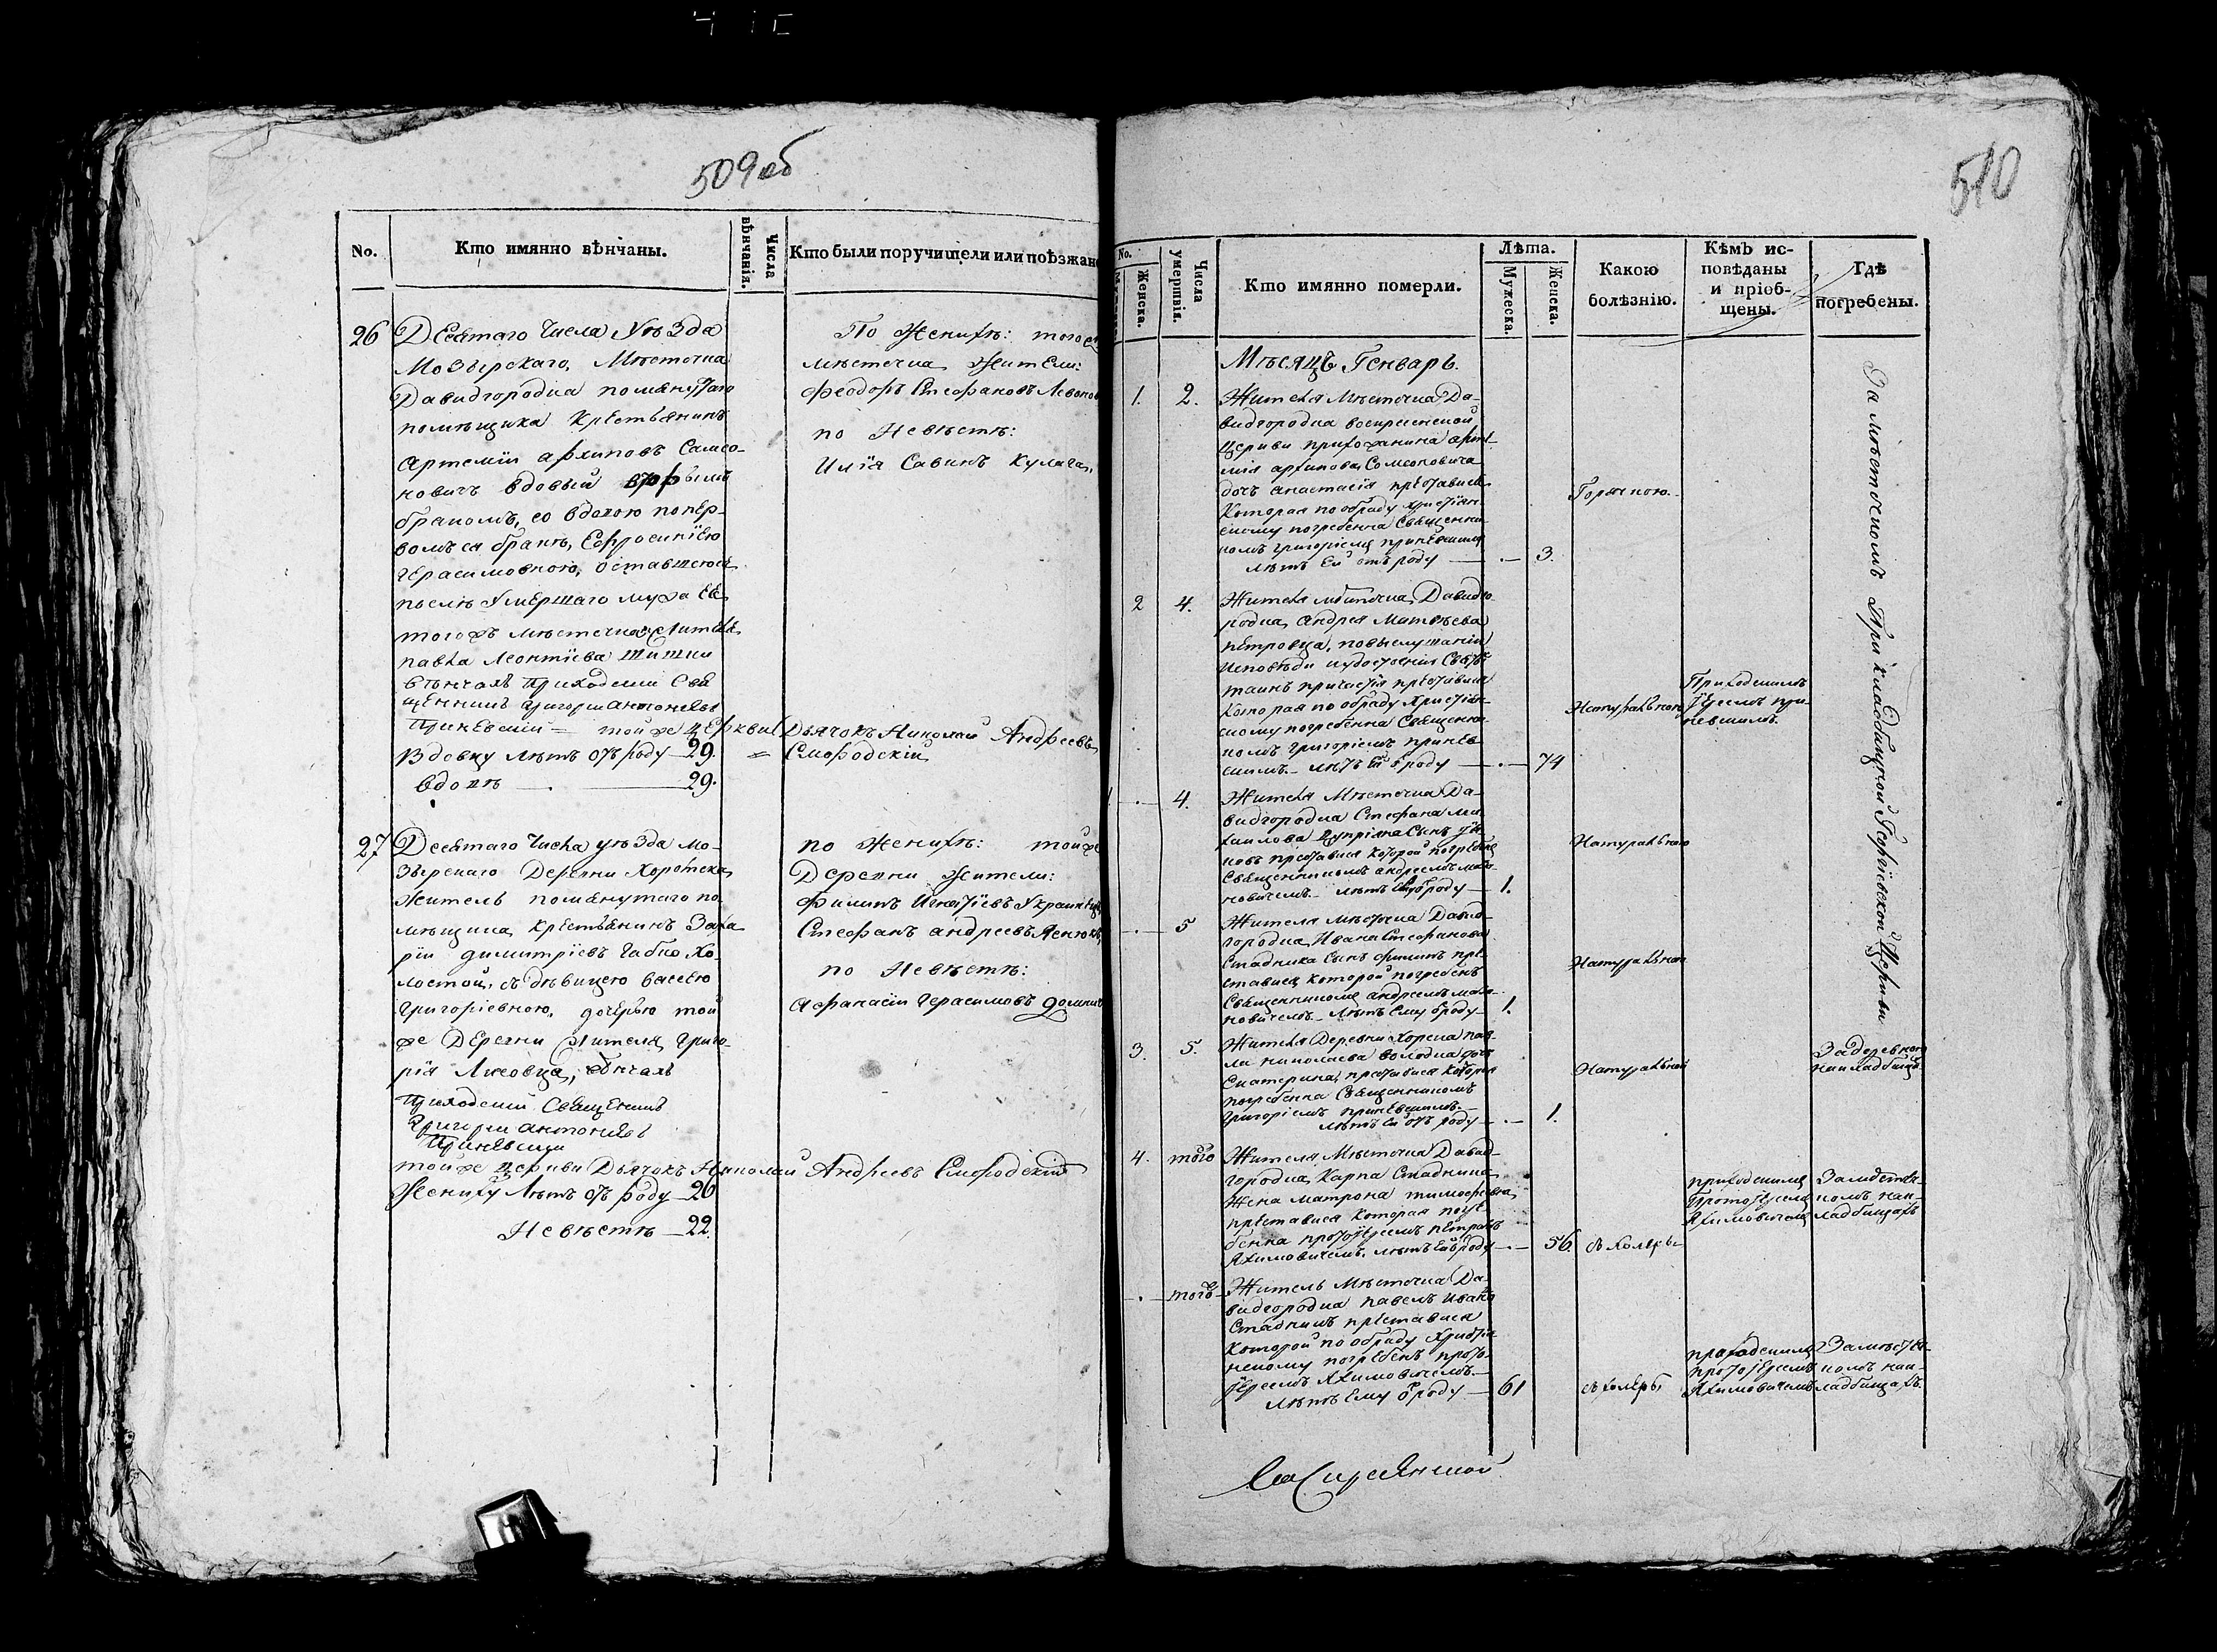 509 об
No.
Кто имянно вѣнчаны.
Числа вѣнчанія.
Кто были поручители или поѣзжан
26
Десятаго Числа Уѣзда
Мозырскаго, Мѣстечка
Давидгородка помянутаго
помѣщика Крестьянинъ
Артемій Архиповъ Самсо-
новичъ вдовый вторымъ
бракомъ, со вдовою по пер-
вомъ ея бракѣ, Ефросиніею
Герасимовною, оставшеюся
послѣ Умершаго мужа Ея
тогожъ мѣстечка жителя
Павла Леонтіева Шишки
Вѣнчалъ Приходскій Свя
щенникъ Григорій Антоніевъ
Приневскій = той же Церкви Дьячокъ Николай Андреевъ
Вдовцу лѣтъ отъ роду 29. = Смородскій
вдовѣ — 29.
По Женихѣ: тогожъ
мѣстечка Жители:
Феодоръ Стефановъ
по Невѣстѣ:
Илія Савинъ Кулага,
27
Десятаго Числа уѣзда Мо-
зырскаго Деревни Хоромска
житель помянутаго по
мѣщика, крестьянинъ Заха
рій Димитріевъ Хо-
лостой, съ дѣвицею Васею
Григоріевною, дочерью той
же Деревни Жителя Григо-
рія Лисовца, вѣнчалъ
Приходскій Священникъ
Григорій Антоніевъ
Приневскій
той же Церкви Дьячокъ Николай Андреевъ Смородскій
Жениху Лѣтъ отъ роду 26
Невѣстѣ — 22.
по Женихѣ: той же
Деревни Жители:
Филипъ Игнатіевъ
Стефанъ Андреевъ
по Невѣстѣ:
Афанасій Герасимовъ
510
No.
Женска.
Числа умертвія.
Кто имянно померли.
Лѣта.
Мужеска.
Женска.
Какою болѣзнію.
Кѣмъ ис-
повѣданы
и пріоб-
щены.
Гдѣ
погребены.
Мѣсяцъ Генварь.
1. 2. Жителя Мѣстечка Да-
видгородка Воскресенской
Церкви прихожанина Арте-
мія Архипова Самсоновича
дочь Анастасія преставися
Которая по обряду христіян-
скому погребенна Священни-
комъ Григоріемъ Приневскимъ
лѣтъ Ей отъ роду — 3.
Горячкою.
2 4. Жителя мѣстечка Давидго-
родка Андрея Матвѣева
Петровца, по выслушаніи
Исповѣди и удостоенія Святыхъ
таинъ причастія преставися
Которая по обряду Христіан-
скому погребенна Священни-
комъ Григоріемъ Принев-
скимъ. лѣтъ Ей отъ роду — 74
Натуральною
Приходскимъ
Іереемъ При-
невскимъ.
4. Жителя Мѣстечка Да-
видгородка Стефана Ми-
хаилова сынъ
преставися которой погребенъ
Священникомъ Андреемъ
лѣтъ Ему отъ роду — 1.
Натуральною
5 Жителя мѣстечка Давид-
городка, Ивана Стефанова
Стадника сынъ Филипъ пре-
ставися которой погребенъ
Священникомъ Андреемъ
Лѣтъ Ему отъ роду — 1.
Натуральною
3. 5. Жителя Деревни Хорска Пав-
ла Николаева дочь
Екатерина преставися которая
погребенна Священникомъ
Григоріемъ Приневскимъ.
лѣтъ Ей отъ роду — 1.
Натуральной
За деревнею
на кладбищѣ
4. того Жителя Мѣстечка Давид-
городка, Карпа Стадника
Жена Матрона Тимофеевна
преставися Которая погре-
бенна протоіереемъ Петромъ
Якимовичемъ. лѣтъ Ей отъ роду — 56
съ Холеры
приходскимъ
Протоіереемъ
Якимовичемъ
За мѣстеч-
комъ на к-
ладбищахъ
того Житель Мѣстечка Да-
видгородка Павелъ Ивановъ
Стадникъ преставися
которой по обряду Христіа
нскому погребенъ прото-
іереемъ Якимовичемъ.
лѣтъ Ему отъ роду — 61
съ холеры
приходскимъ
протоіереемъ
Якимовичемъ
За мѣстеч-
комъ на к-
ладбищахъ.
За мѣстечкомъ При кладбищной Георгіевской Церкви